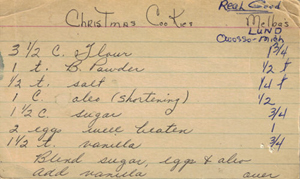 Christmas Cookies Real Good
Melbas
LUND
Owosso - Mich
3 1/2 C. Flour 1 3/4
1 t. B. Powder 1/2 t
1/2 t. salt 1/4 t
1 C. oleo (shortening) 1/2
1 1/2 C. sugar 3/4
2 eggs well beaten 1
1 1/2 t. vanilla 3/4
Blend sugar, eggs & oleo
Add vanilla over